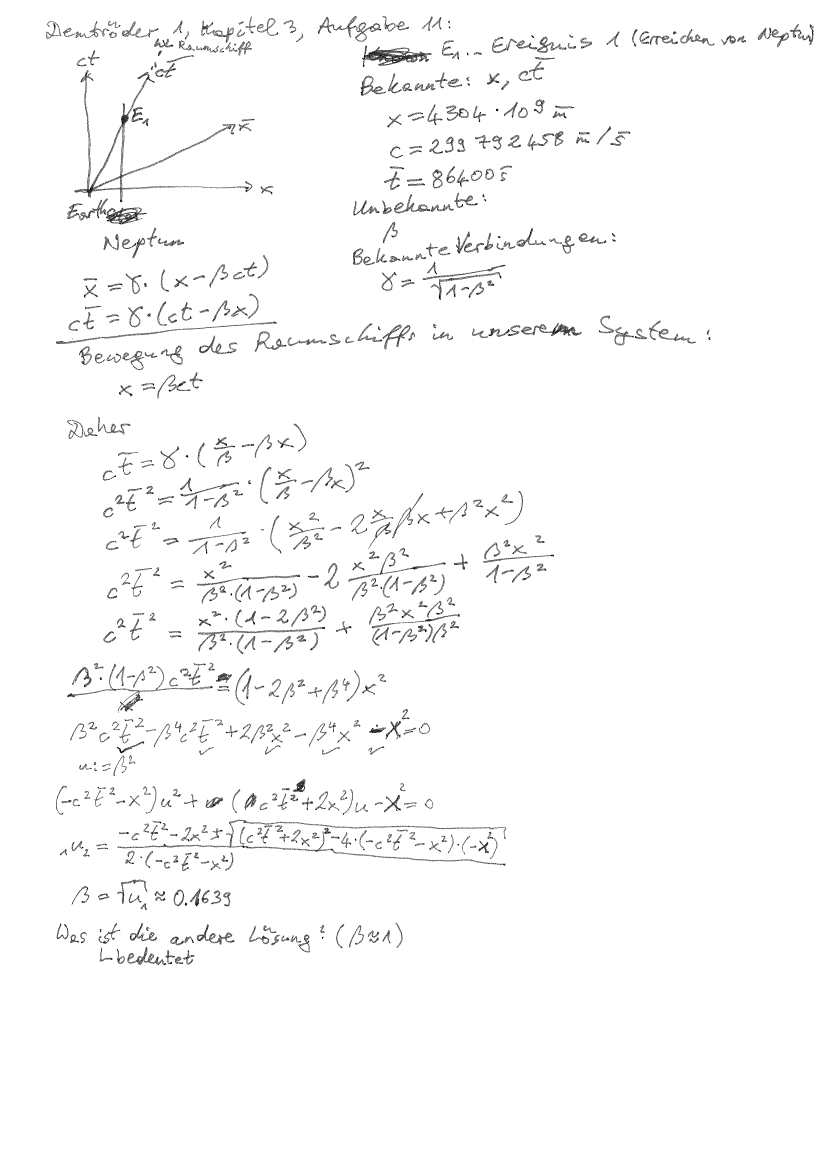 Demtröder 1, Kapitel 3, Aufgabe 11:
WL Raumschiff
E₁... Ereignis 1 (Erreichen von Neptun)
ct
ct̄
E₁
x̄
x
Earth
Neptun
Bekannte: x, ct̄
x = 4304 · 10⁹ m̄
c = 299 792 458 m̄/s̄
t̄ = 86400 s̄
Unbekannte:
β
Bekannte Verbindungen:
γ = 1/√(1-β²)
x̄ = γ · (x - βct)
ct̄ = γ · (ct - βx)
Bewegung des Raumschiffs in unserem System:
x = βct
Daher
ct̄ = γ · (x/β - βx)
c²t̄² = 1/(1-β²) · (x/β - βx)²
c²t̄² = 1/(1-β²) · (x²/β² - 2 x/β βx + β²x²)
c²t̄² = x²/(β²·(1-β²)) - 2 x²β²/(β²·(1-β²)) + β²x²/(1-β²)
c²t̄² = x²·(1-2β²)/(β²·(1-β²)) + β²x²β²/((1-β²)β²)
β²·(1-β²)c²t̄² = (1-2β²+β⁴)x²
β²c²t̄² - β⁴c²t̄² + 2β²x² - β⁴x² - x² = 0
u := β²
(-c²t̄² - x²)u² + (c²t̄² + 2x²)u - x² = 0
₁u₂ = (-c²t̄² - 2x² ± √((c²t̄² + 2x²)² - 4·(-c²t̄² - x²)·(-x²)))/(2·(-c²t̄² - x²))
β = √u₁ ≈ 0.1639
Was ist die andere Lösung? (β≈1)
bedeutet